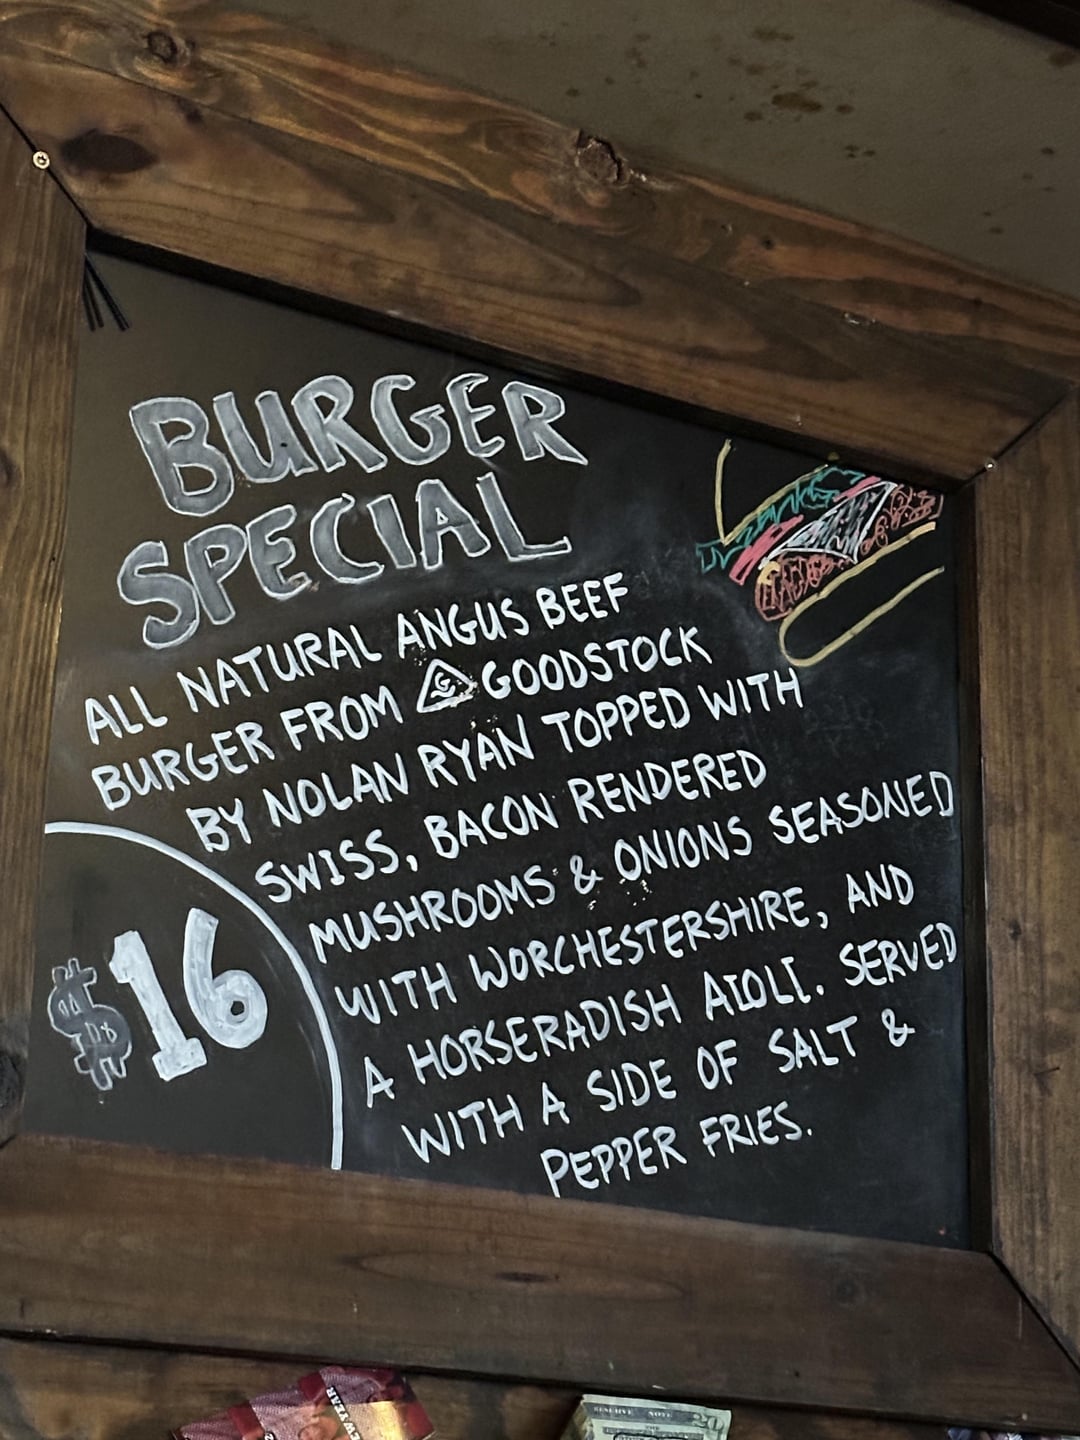 BURGER
SPECIAL
ALL NATURAL ANGUS BEEF
BURGER FROM G GOODSTOCK
BY NOLAN RYAN TOPPED WITH
SWISS, BACON RENDERED
MUSHROOMS & ONIONS SEASONED
WITH WORCHESTERSHIRE, AND
A HORSERADISH AIOLI. SERVED
WITH A SIDE OF SALT &
PEPPER FRIES.
$16
20